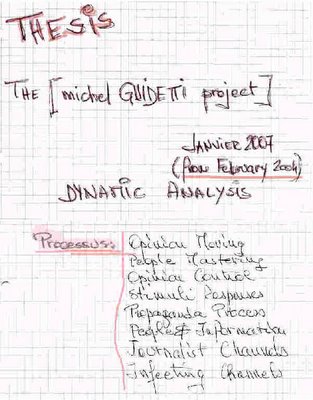 THESIS
THE [michel GUIDETTI project]
JANVIER 2007
(from February 2004)
DYNAMIC ANALYSIS
Processuss:
Opinion Moving
People Mastering
Opinion Control
Stimuli Responses
Propaganda Process
People & Information
Journalist Channels
Infecting Channels